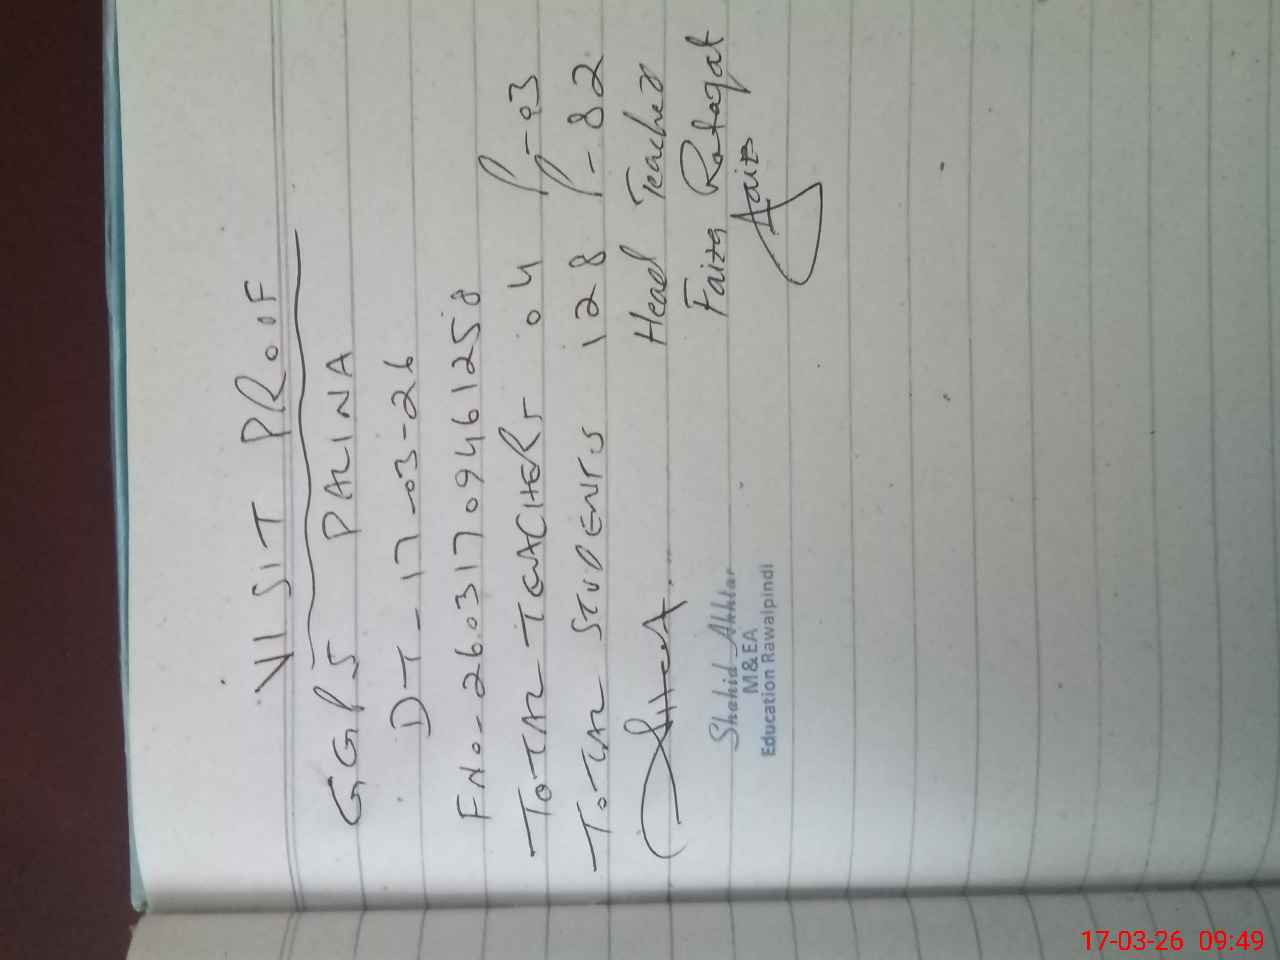 VISIT PROOF
GGPS PALINA
DT-17-03-26
FNo-26031709461258
TOTAL TEACHERS 04 P-03
TOTAL STUDENTS 128 P-82
Head Teacher
Faiza Rafaqat
Shahid Akhtar
M&EA
Education Rawalpindi
17-03-26 09:49